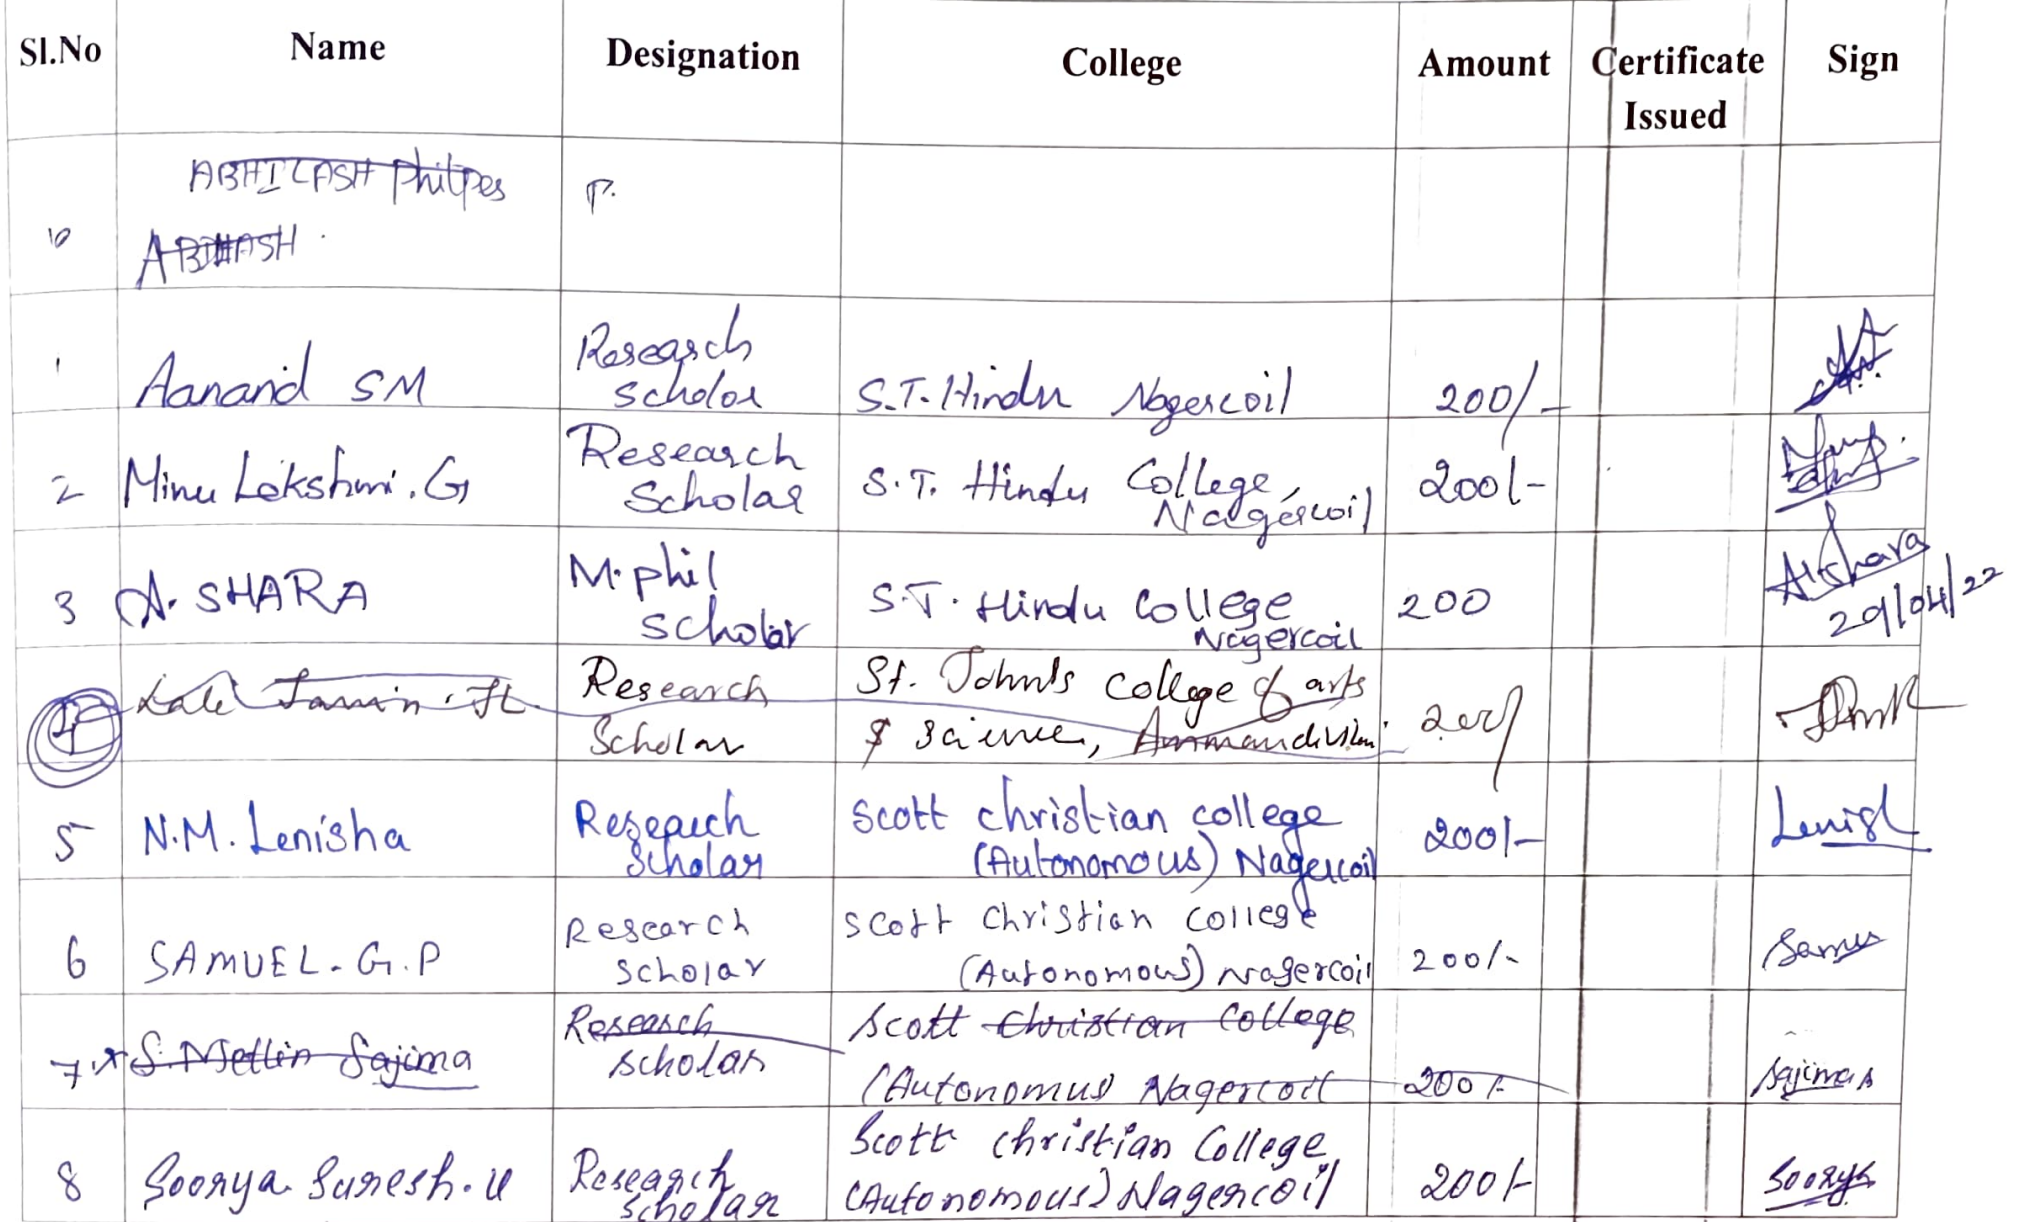 Sl.No Name Designation College Amount Certificate Issued Sign
10 ABHILASH Philpes P.
ABHILASH
1 Aanand SM Research Scholar S.T. Hindu Nagercoil 200/-
2 Minu Lekshmi . G Research Scholar S.T. Hindu College, Nagercoil 200/-
3 A. SHARA M.phil Scholar S.T. Hindu College Nagercoil 200 Akshara 29/04/22
4 Research Scholar St. John's College of arts & Science, Ammandivilai 200/
5 N.M. Lenisha Research Scholar Scott Christian College (Autonomous) Nagercoil 200/- Lenish
6 SAMUEL. G.P Research Scholar Scott Christian College (Autonomous) Nagercoil 200/-
7 S. Mellin Sajima Research Scholar Scott Christian College (Autonomus) Nagercoil 200/- Sajima S
8 Soorya Suresh. U Research Scholar Scott Christian College (Autonomous) Nagercoil 200/- Soorya